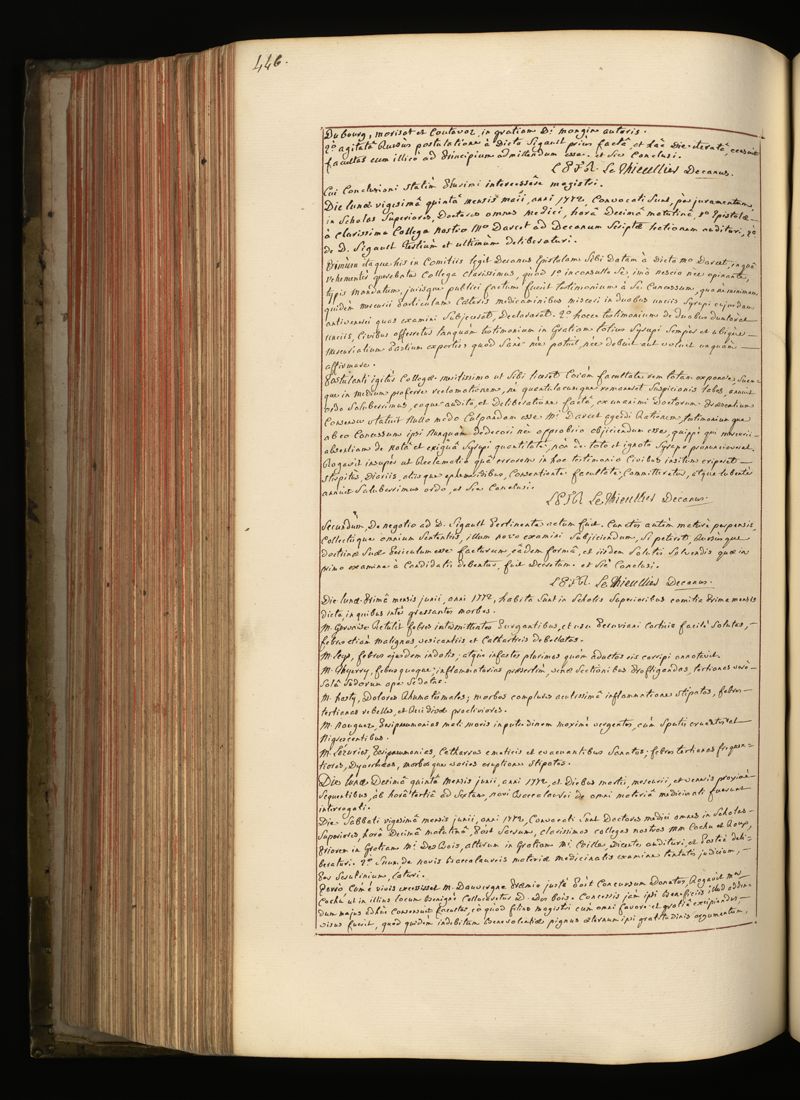 446.
Dubourg, morisot et Coutavoz, in gratiam D.i mongin autoris.
2.o agitatâ Rursus postulatione à Dicto Sigault priùs factâ, et hâc Die iteratâ, censuit
facultas eum illicò ad Principium admittendum esse. et sic Conclusi.
Le Thieullier Decanus.
Cui Conclusioni statim plurimi intercessêre magistri.
Die lunæ vigesimâ quintâ mensis maii, anni 1772, Convocati Sunt, per juramentum,
in Scholas Superiores, Doctores omnes medici, horâ Decimâ matutinâ, 1.o Epistolæ
à Clarissimo Collega nostro M.ro Darcet ad Decanum Scriptæ lectionem audituri, 2.o
de D. Sigault tertiùm et ultimùm deliberaturi.
Primùm itaque his in Comitiis legit Decanus Epistolam Sibi Datam à dicto m.ro Darcet, in quâ
vehementer querebatur Collega clarissimus, quòd 1.o inconsulto Se, imò nescio nec opinante,
typis mandatum, jurisque publici factum fuerit testimonium à Se Concessum, quo ne minimam
quidem mercurii particulam Cæteris medicaminibus misceri in duabus unciis Syrupi cujusdam
antivenerei quas examini Subjecerat, Declaraverat. 2.o hocce testimonium de duabus duntaxat
unciis, Civibus offerretur tanquàm testimonium in Gratiam totius Syrupi Semper et ubique
mercurialium partium expertis; quod Sanè nec potuit, nec debuit aut voluit unquàm
affirmare.
Postulanti igitur Collegæ meritissimo ut Sibi liceret Coràm facultate rem totam exponere, Suam-
que in medium proferre reclamationem, ne quantulacunque remaneret Suspicionis labes, annuit
ordo Saluberrimus, eoque audito, et deliberatione factâ, ex unanimi Doctorum præsentium
Consensu statuit Nullo modo Culpandam esse M.i Darcet agendi Rationem, testimoniumque
ab eo Concessum ipsi nunquàm dedecori nec opprobrio objiciendum esse, quippè qui mercurii
absentiam de notâ et exiguâ Syrupi quantitate, non de toto et ignoto Syrupo pronunciaverat.
Rogavit insuper ut Reclamatio quæ errorem in hoc testimonio Civibus insitum eriperet
typis, Diariis, aliisque ephemeridibus, Consentiente facultate, Committeretur, atque lubenter
annuit Saluberrimus ordo, et sic Conclusi.
Le Thieullier Decanus.
Secundùm, De negotio ad D. Sigault Pertinente actum fuit. Cunctis autem maturè perpensis,
Collectisque omnium Sententiis, illum novo examini Subjiciendum, Si peteret, Rursùsque
doctrinæ Suæ periculum esse facturum, eâdem formâ, et iisdem Solutis Solvendis quæ in
primo examine à Candidatis debentur, fuit Decretum. et sic Conclusi.
Le Thieullier Decanus.
Die lunæ primâ mensis junii, anni 1772, habita Sunt in Scholis Superioribus comitia prima mensis
dicta in quibus inter grassantes morbos.
M. Gervaise Retulit febres intermittentes Purgantibus, et usu Peruviani Corticis facilè Solutas,
febres etiam malignas, vesicantiis et Catharticis debellatas.
M. Thierry, febres quoque inflammatorias præsertim, venæ Sectionibus profligandas, tertianas verò
Solâ Sudorum ope Sedatas.
M. hasty, Dolores rhumatismales; morbos complures acutissimâ inflammatione stipatos, febres
tertianas rebelles, et Recidivæ procliviores.
M. Nouguez, Peripneumonias mali moris in putredinem maximè vergentes, cum Sputis cruentis et
Nigrescentibus.
M. Lezurier, Peripneumonias, Catharros emeticis et evacuantibus Sanatos; febres tertianas frequen-
tiores, Dysenterias, morbosque varios eruptione stipatos.
Die lunæ Decimâ quintâ mensis junii, anni 1772, et Diebus martis, mercurii, et veneris proximè
Sequentibus, ab horâ tertiâ ad Sextam, novi Baccalaurei de omni materiâ medicinali fuerunt
interrogati.
Die Sabbati vigesimâ mensis junii, anni 1772, Convocati Sunt Doctores medici omnes in Scholas
Superiores, horâ Decimâ matutinâ, Post Sacrum, clarissimos collegas nostros MM Cochu et Roux,
priorem in Gratiam M.i Des Bois, alterum in Gratiam M.i Coiller, Dicentes audituri, et Posteà deli-
beraturi. 2.o Suum de novis Baccalaureis materiæ medicinalis examine tentatis, judicium,
Per Scrutinium, laturi.
Porrò Cùm è vivis excessisset M. Dauvergne præmio justè Concursum donatus, Rogavit M.er
Cochu ut in illius locum benignè Collocaretur D. Des Bois. Concessis jam ipsi beneficiis illud adden-
dum majus adhuc Consensuit facultas, eò quòd filius magistri cum omni favore et gratiâ excipiendus
visus fuerit, quòd quidem indubitum Benevolentiæ pignus æternum ipsi gratitudinis argumentum,